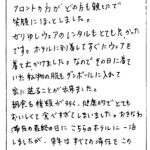 フロントの方が どの方も親切で
笑顔にほっとしました。
かりゆしウェアのレンタルもとても良かった
です。ホテルに到着してすぐにウェアを
着てお出かけました。なのでその日に着て
いた私物の服もダンボールに入れて
家に送ることが出来ました。
朝食も種類が多く、健康的でとても
おいしくて食べすぎてしまいました。おきなわ
滞在の最終の日にこちらのホテルに一泊
しましたが、来年はすべての滞在をこの